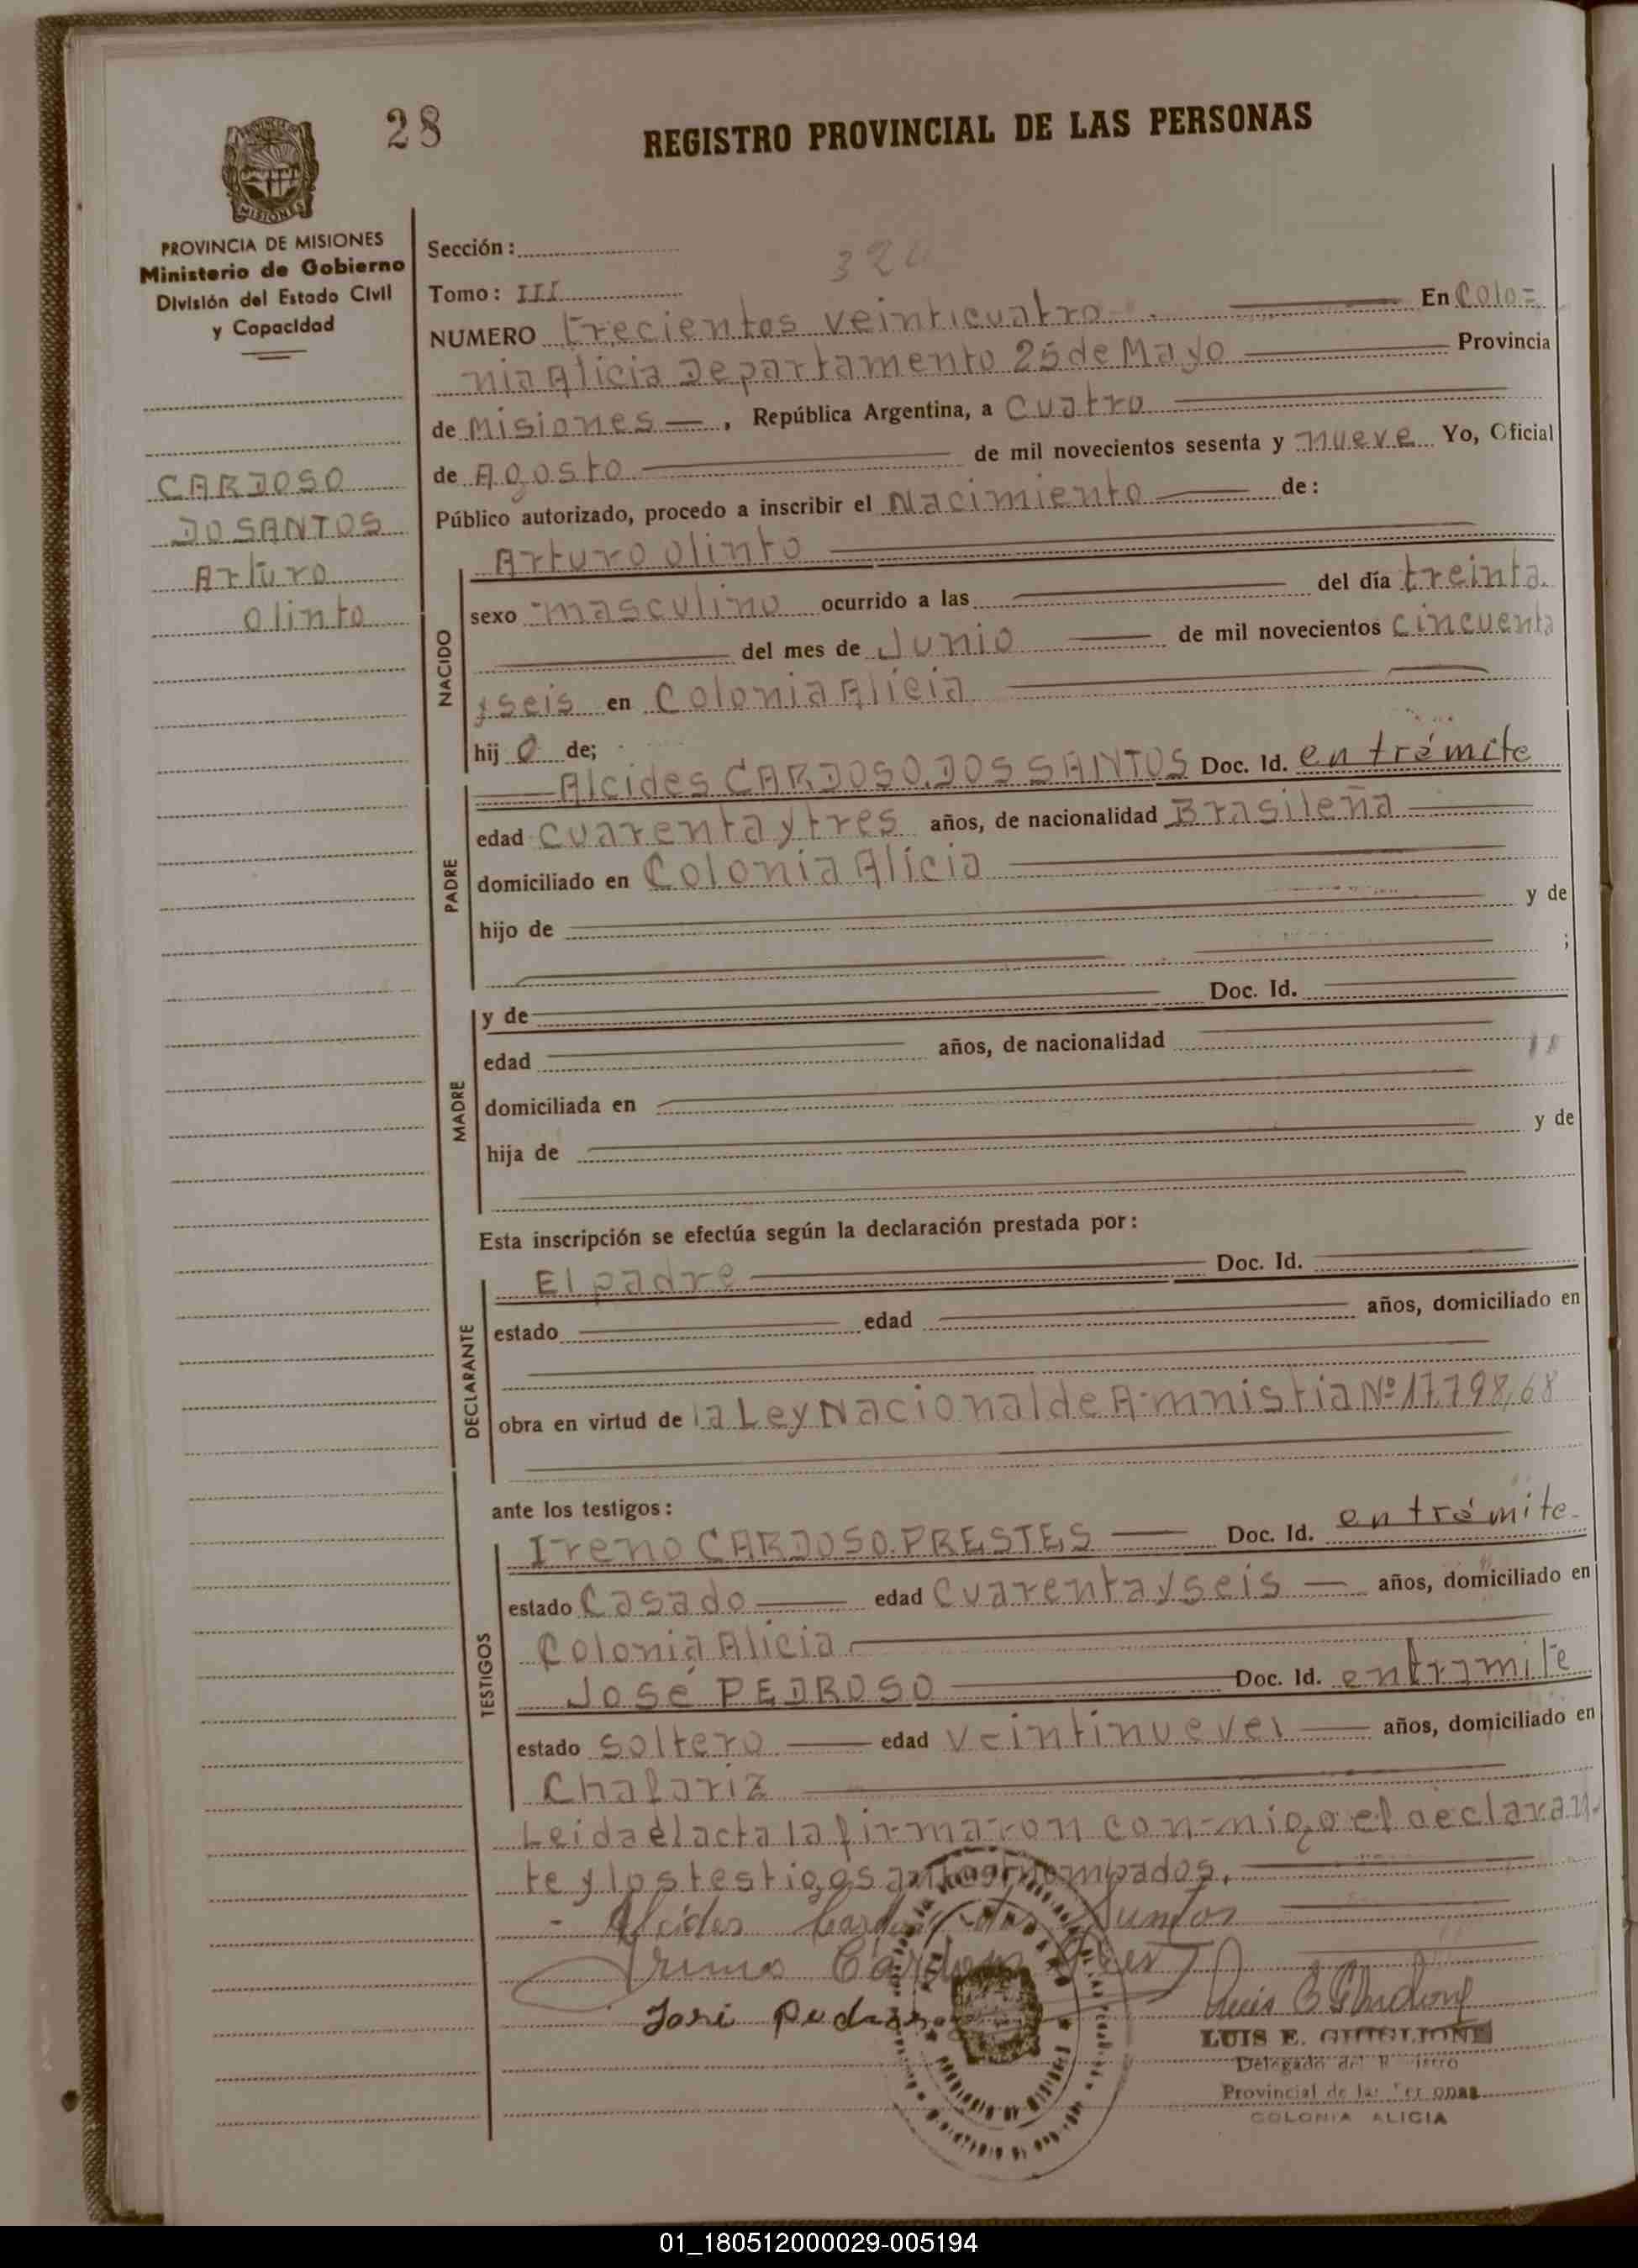 28
REGISTRO PROVINCIAL DE LAS PERSONAS
PROVINCIA DE MISIONES
Ministerio de Gobierno
División del Estado Civil
y Capacidad
CARDOSO
DO SANTOS
Arturo
Olinto
Sección:
Tomo: III
NUMERO trecientos veinticuatro En Colo=
nia Alicia Departamento 25 de Mayo Provincia
de Misiones, República Argentina, a cuatro
de Agosto de mil novecientos sesenta y nueve Yo, Oficial
Público autorizado, procedo a inscribir el Nacimiento de:
NACIDO
Arturo Olinto
sexo masculino ocurrido a las del día treinta
del mes de Junio de mil novecientos cincuenta
y seis en Colonia Alicia
hij o de;
PADRE
Alcides CARDOSO.DOS SANTOS Doc. Id. en trámite
edad cuarenta y tres años, de nacionalidad Brasileña
domiciliado en Colonia Alicia
hijo de y de
;
MADRE
y de Doc. Id.
edad años, de nacionalidad
domiciliada en
hija de y de
Esta inscripción se efectúa según la declaración prestada por:
DECLARANTE
El padre Doc. Id.
estado edad años, domiciliado en
obra en virtud de la Ley Nacional de Amnistia Nº 17.798,68
ante los testigos:
TESTIGOS
Ireno CARDOSO.PRESTES Doc. Id. en trámite
estado Casado edad Cuarenta y seis años, domiciliado en
Colonia Alicia
José PEDROSO Doc. Id. en tramite
estado soltero edad veintinueve años, domiciliado en
Chafariz
Leida el acta la firmaron conmigo el declaran-
te y los testigos
Alcides Santos
José
LUIS E.
Delegado del
Provincial de las
COLONIA ALICIA
01_180512000029-005194